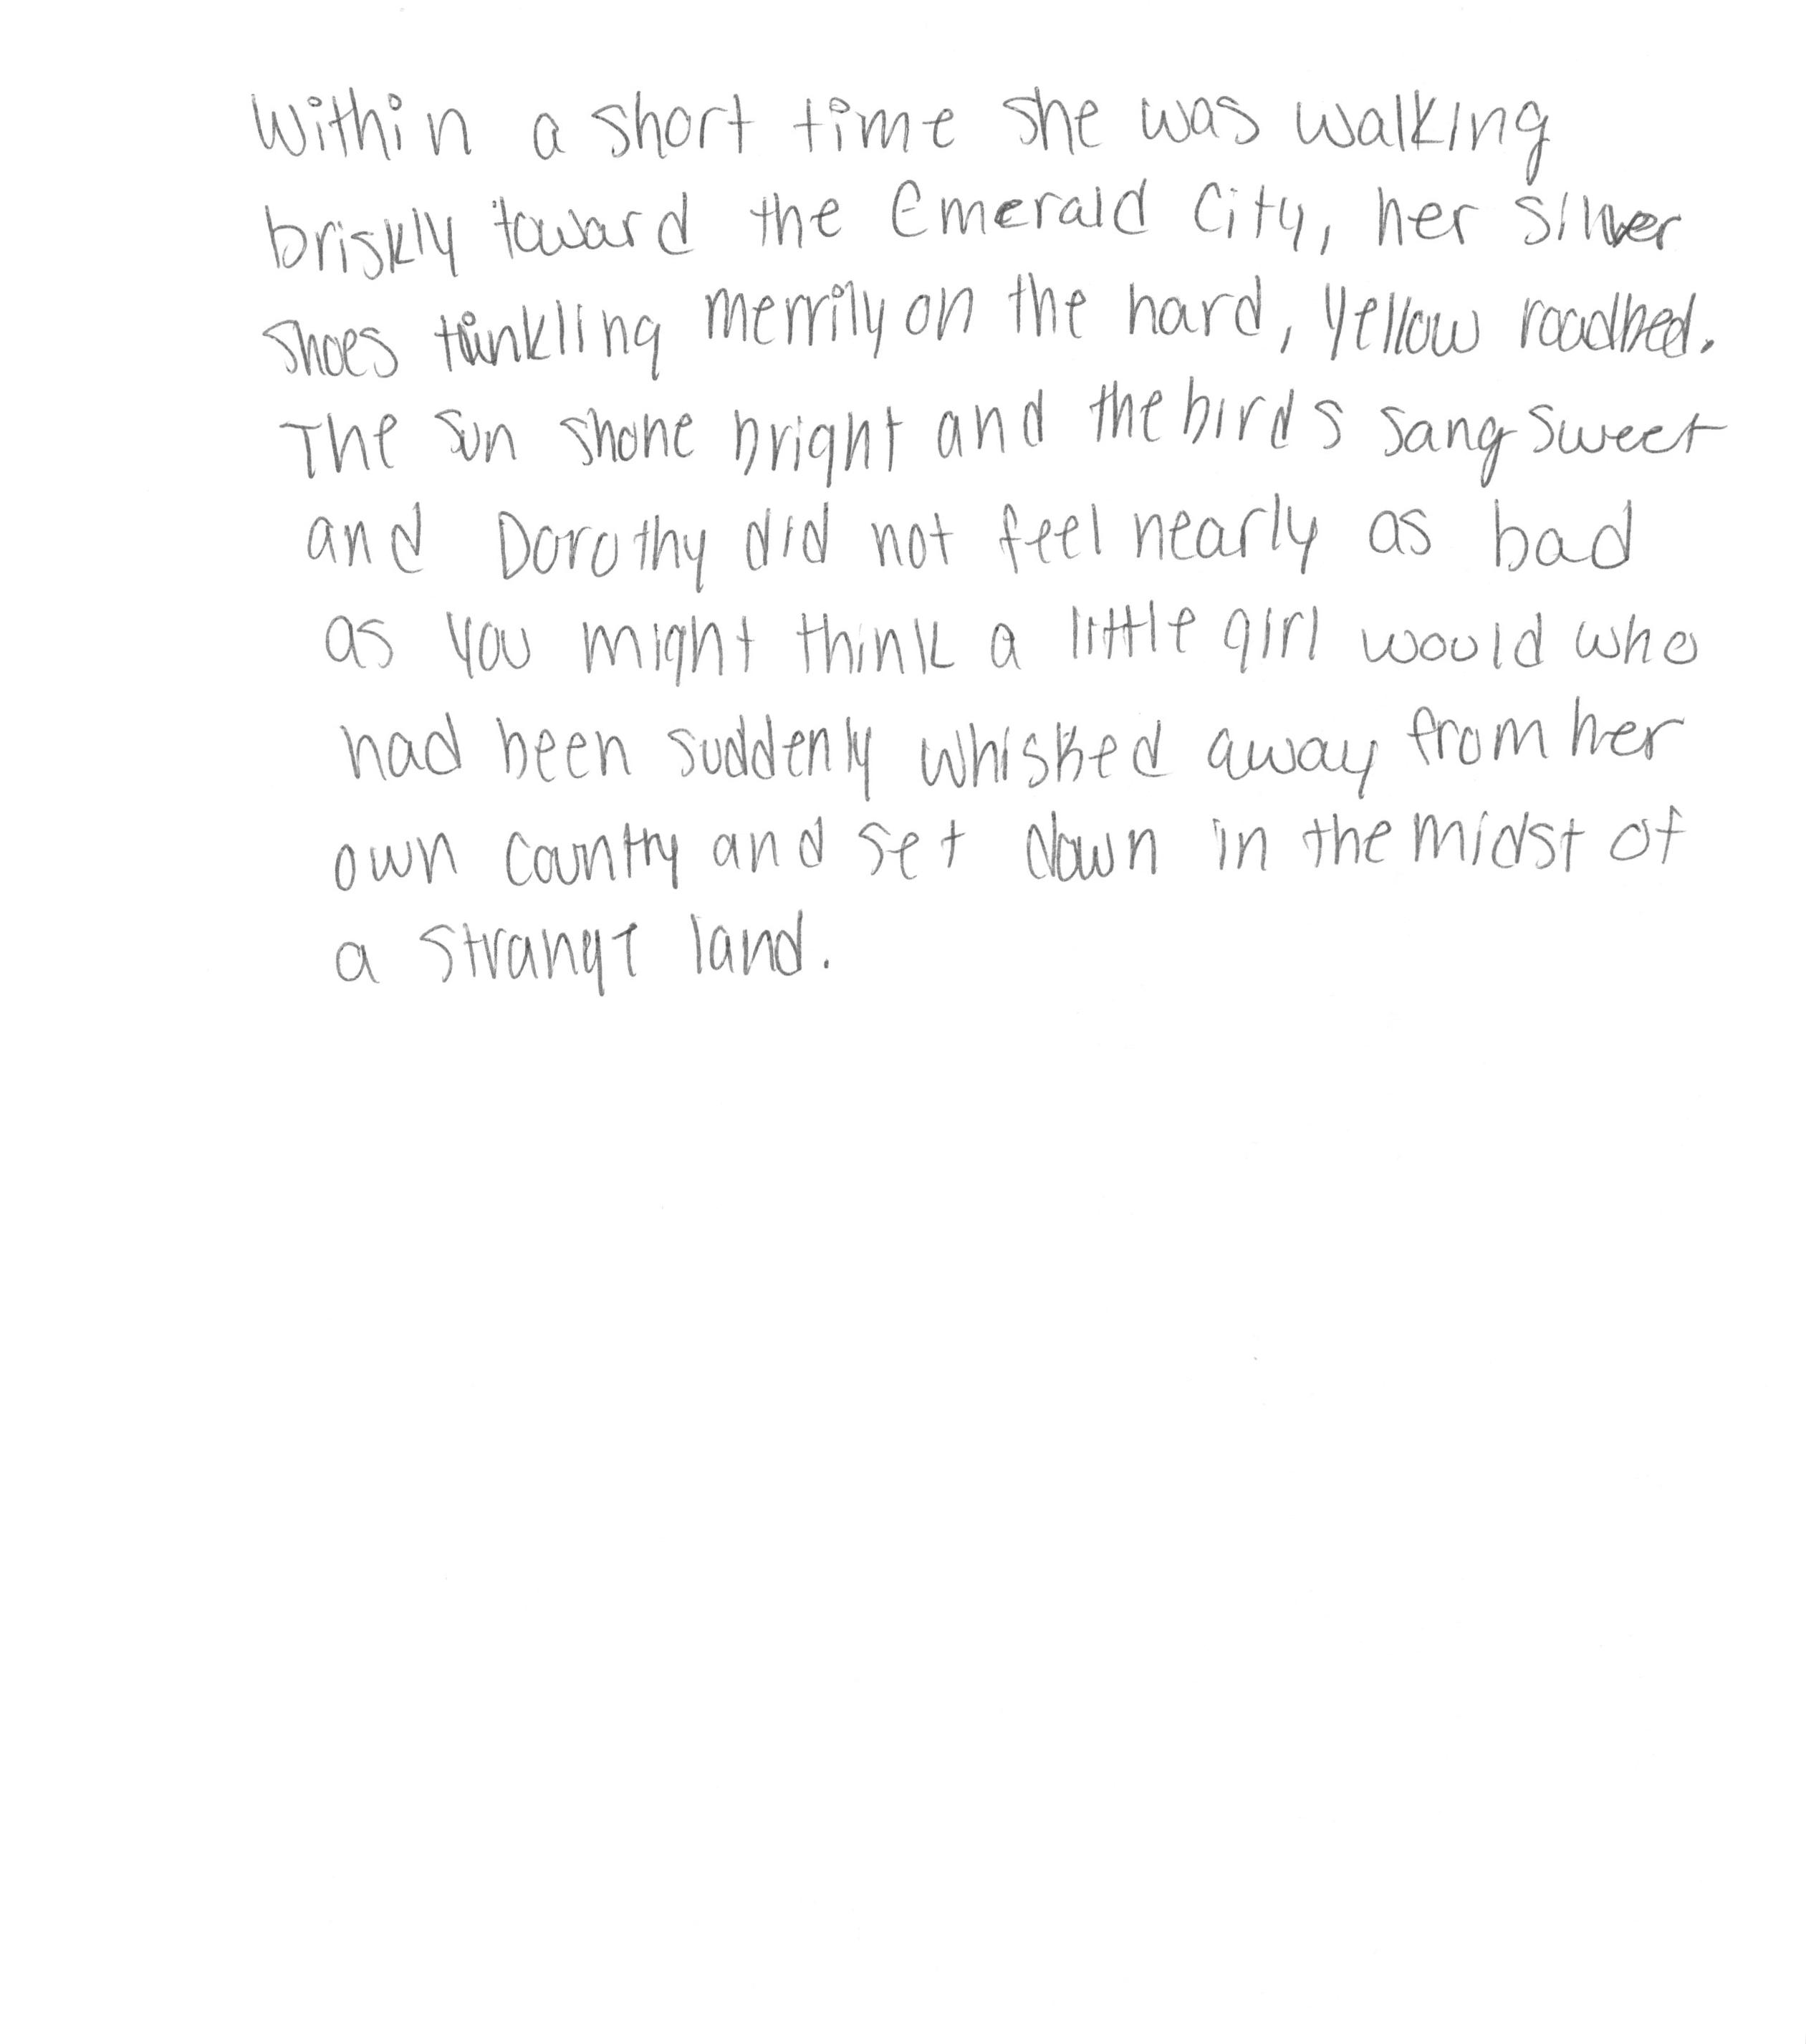 Within a short time she was walking
briskly toward the Emerald City, her silver
shoes tinkling merrily on the hard, yellow roadbed.
The sun shone bright and the birds sang sweet
and Dorothy did not feel nearly as bad
as you might think a little girl would who
had been suddenly whisked away from her
own country and set down in the midst of
a strange land.